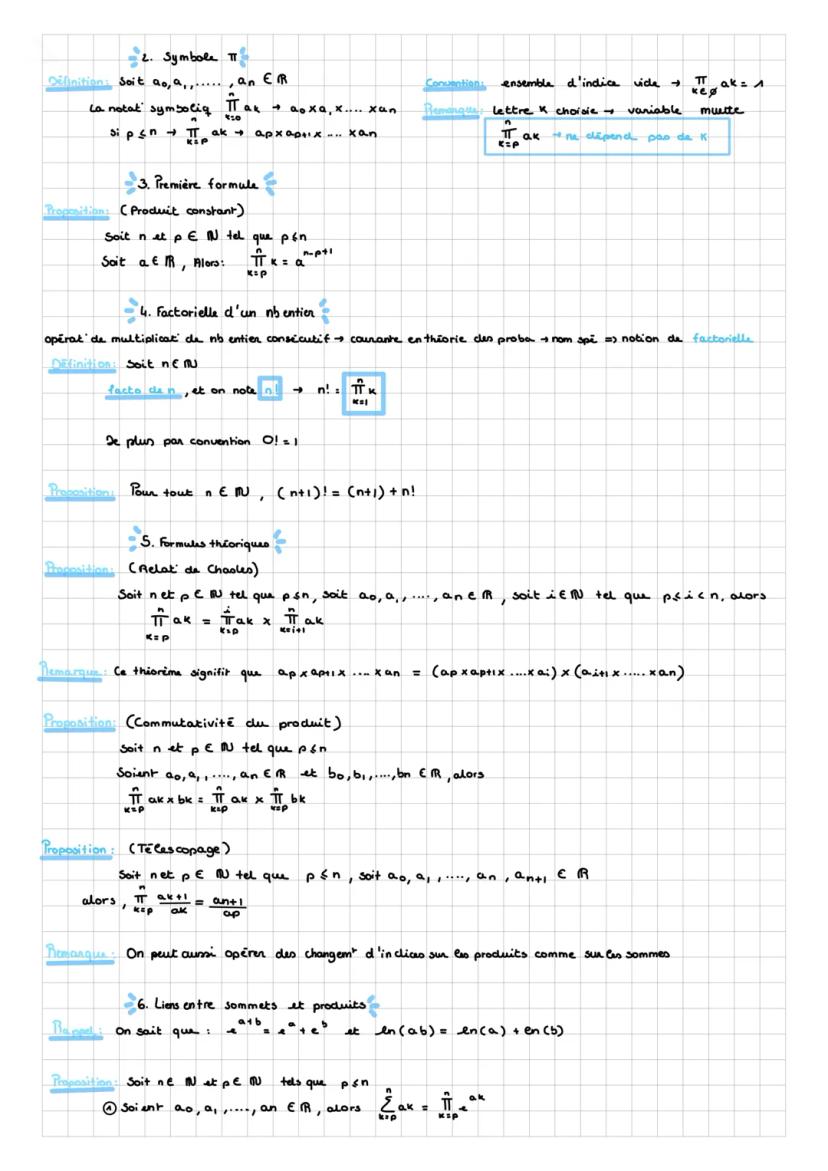 2. Symbole π
Définition: Soit a₀,a₁,....., aₙ ∈ ℝ
La notat° symboliq ∏ₖ₌₀ⁿ aₖ → a₀xa₁x.... xaₙ
si p ≤ n → ∏ₖ₌ₚⁿ aₖ → aₚxaₚ₊₁x .... xaₙ
Convention: ensemble d'indice vide → ∏ₖ∈∅ aₖ = 1
Remarque: Lettre K choisie → variable muette
∏ₖ₌ₚⁿ aₖ → ne dépend pas de K
3. Première formule
Proposition: (Produit constant)
Soit n et p ∈ ℕ tel que p≤n
Soit a ∈ ℝ, Alors: ∏ₖ₌ₚⁿ K = aⁿ⁻ᵖ⁺¹
4. Factorielle d'un nb entier
opérat° de multiplicat° de nb entier consécutif → courante en théorie des proba → nom spé => notion de factorielle
Définition: Soit n ∈ ℕ
facto de n, et on note n! → n! = ∏ₖ₌₁ⁿ K
De plus par convention 0! = 1
Proposition: Pour tout n ∈ ℕ, (n+1)! = (n+1) + n!
5. Formules théoriques
Proposition: (Relat° de Chasles)
Soit n et p ∈ ℕ tel que p≤n, soit a₀,a₁,....,aₙ ∈ ℝ, soit i ∈ ℕ tel que p≤i<n, alors
∏ₖ₌ₚⁿ aₖ = ∏ₖ₌ₚⁱ aₖ x ∏ₖ₌ᵢ₊₁ⁿ aₖ
Remarque: Ce théorème signifit que aₚxaₚ₊₁x .... xaₙ = (aₚxaₚ₊₁x ....xaᵢ) x (aᵢ₊₁x ..... xaₙ)
Proposition: (Commutativité du produit)
Soit n et p ∈ ℕ tel que p≤n
Soient a₀,a₁,....,aₙ ∈ ℝ et b₀,b₁,....,bₙ ∈ ℝ, alors
∏ₖ₌ₚⁿ aₖ x bₖ = ∏ₖ₌ₚⁿ aₖ x ∏ₖ₌ₚⁿ bₖ
Proposition: (Télescopage)
Soit n et p ∈ ℕ tel que p≤n, soit a₀,a₁,....,aₙ,aₙ₊₁ ∈ ℝ
alors, ∏ₖ₌ₚⁿ aₖ₊₁/aₖ = aₙ₊₁/aₚ
Remarque: On peut aussi opérer des changemᵗ d'indices sur les produits comme sur les sommes
6. Liens entre sommets et produits
Rappel: On sait que : eᵃ⁺ᵇ = eᵃ + eᵇ et ln(ab) = ln(a) + ln(b)
Proposition: Soit n ∈ ℕ et p ∈ ℕ tels que p≤n
① Soient a₀,a₁,....,aₙ ∈ ℝ, alors ∑ₖ₌ₚⁿ aₖ = ∏ₖ₌ₚⁿ e^aₖ